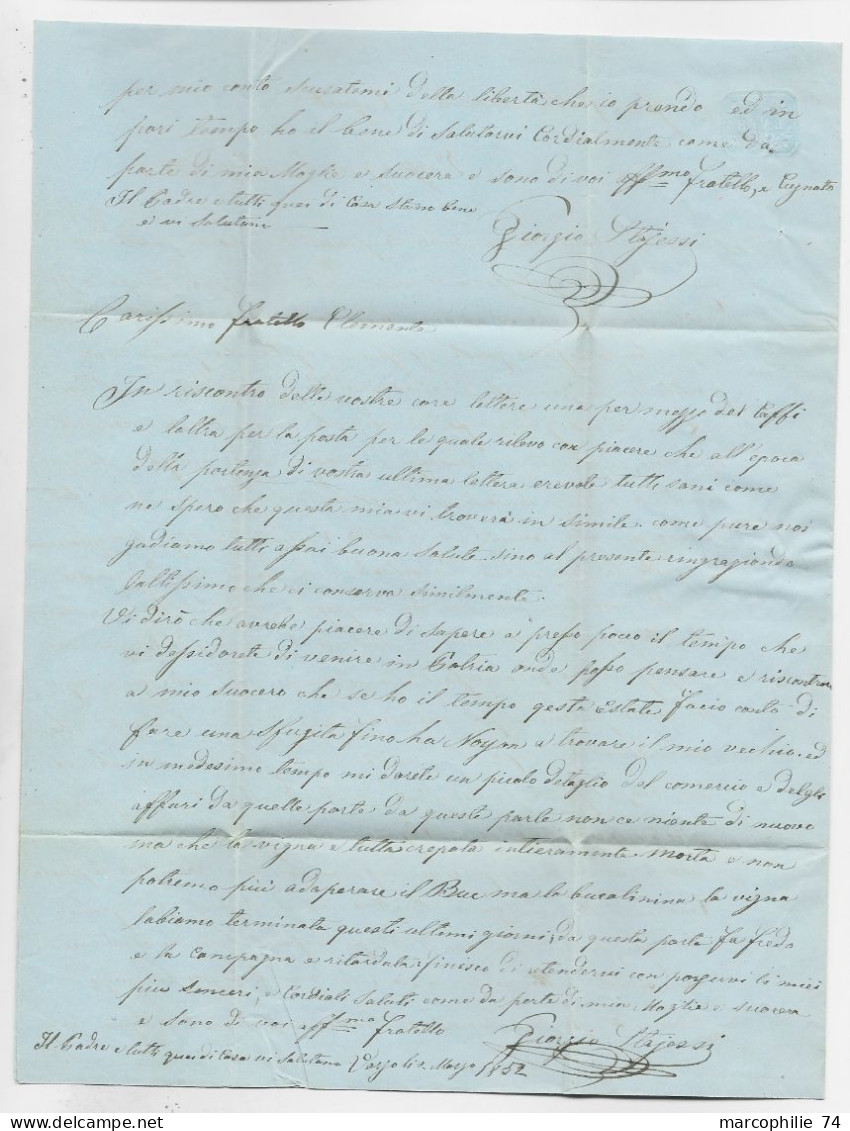 per mio conto scusatemi della libertà che io prendo ed in
pari tempo ho il bene di salutarvi Cordialmente come da
parte di mia Moglie e suocera e sono di voi affmo fratello, e Cugnato
Il Padre e tutti quei di Casa stano bene
e vi salutano
Giorgio
Carissimo fratello Clemente
In riscontro delle vostre care lettere una per mezzo del
e laltra per la posta per le quale rilevo con piacere che all'epoca
della partenza di vostra ultima lettera erevate tutti sani come
ne spero che questa mia vi troverà in simile come pure noi
godiamo tutti assai buona salute sino al presente ringraziando
laltissimo che ci conserva similmente.
Vi dirò che avrebo piacere di sapere a presso pocco il tempo che
vi dessidarete di venire in Patria onde posso pensare e riscontrare
a mio suocero che se ho il tempo qesta Estate facio conto di
fare una sfugita fino ha Noyon a trovare il mio vechio, ed
in medesimo tempo mi darete un picolo detaglio del comercio e delgli
affari da quelle parte da queste parte non ce niente di nuovo
ma che la vigna e tutta crepata intieramente morta e non
potremo più adaperare il Bue ma la la vigna
labiamo terminata questi ultemi giorni, da questa parte fa fredo
e la Campagna e ritardata finisco di atendervi con porgervi li miei
più senceri, e Cordiali saluti come da parte di mia Moglie e suocera
e sono di voi affmo fratello
Giorgio
Il Padre e tutti quei di Casa vi salutano Marzo 1852
marcophilie 74